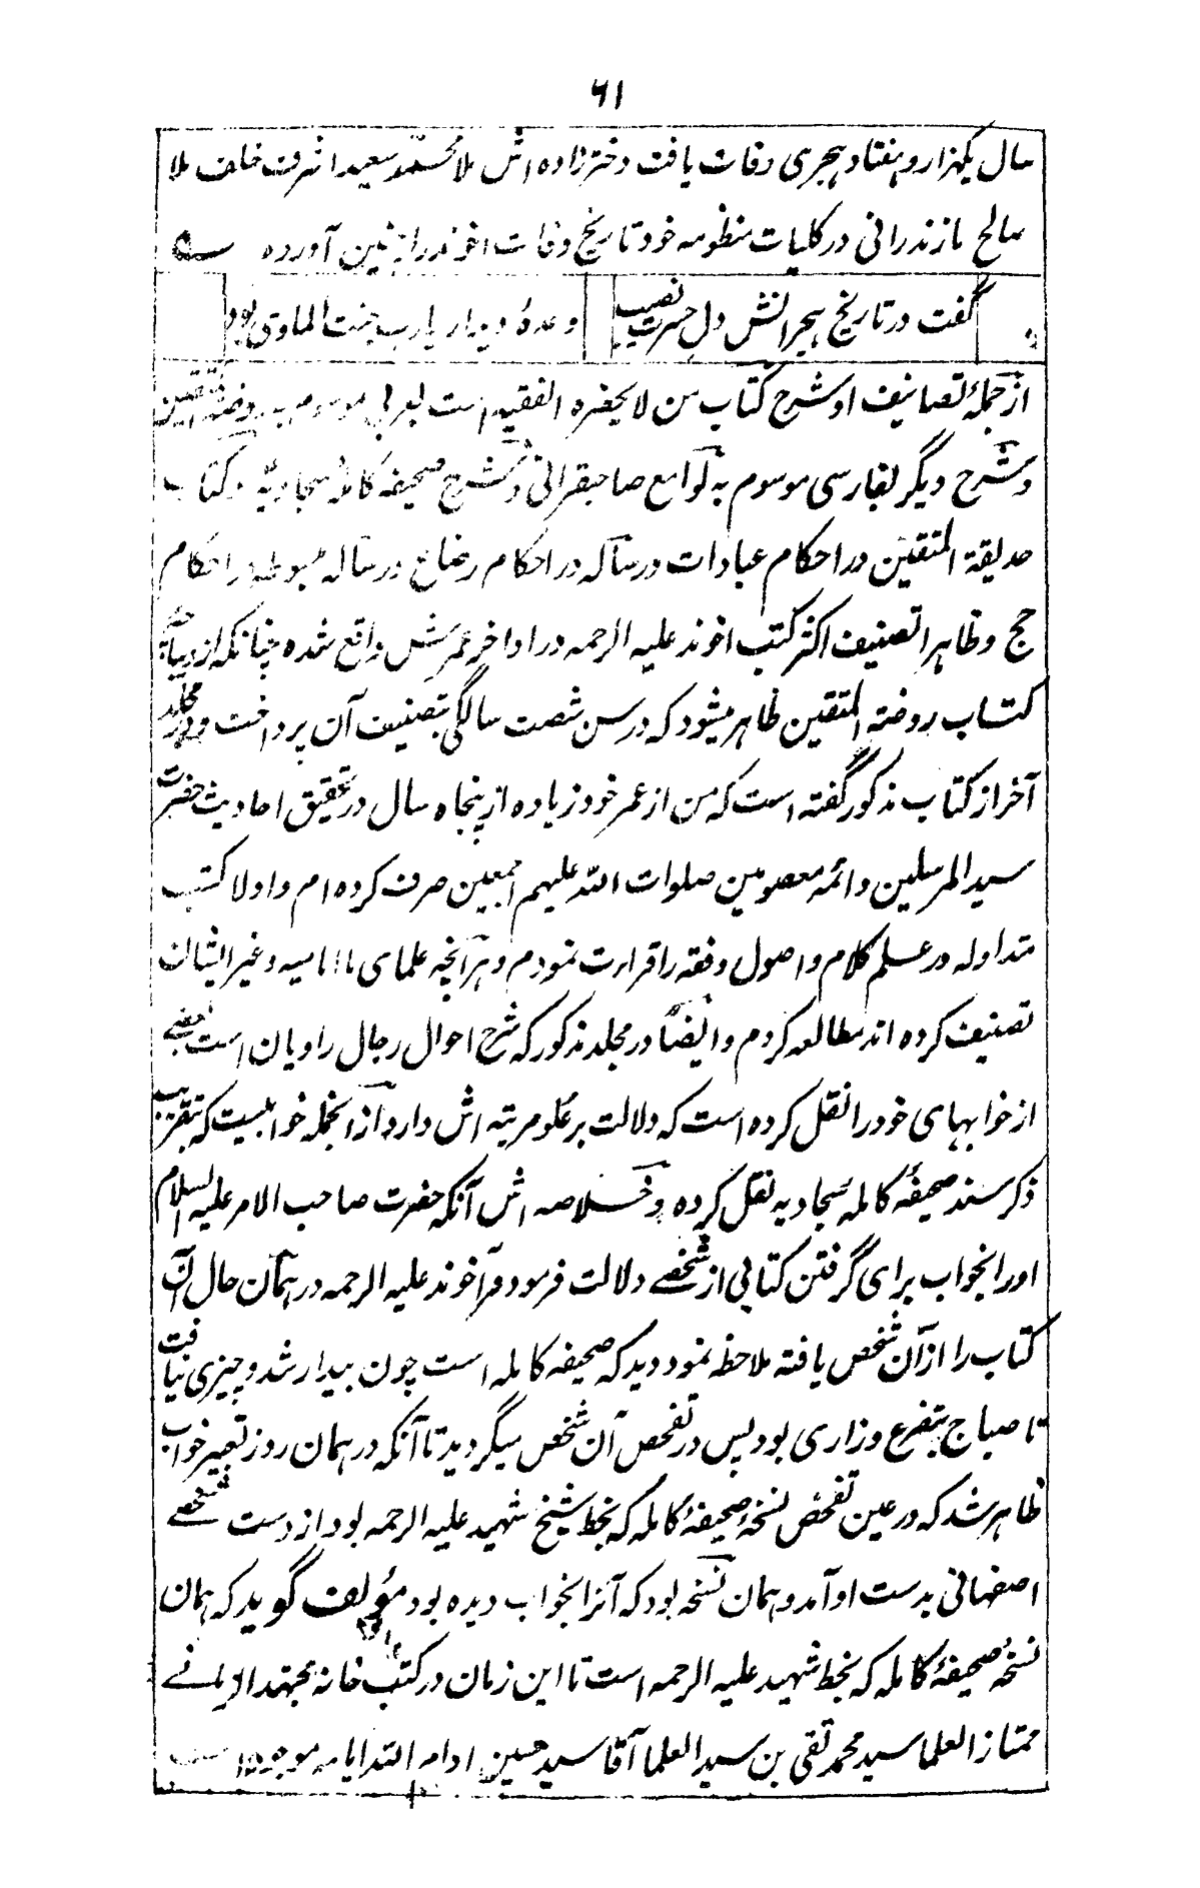 ۶۱
سال یکهزار و هفتاد هجری وفات یافت دخترزاده اش ملا محمد سعید اشرف خلف ملا
صالح مازندرانی در کلیات منظومه خود تاریخ وفات اخوند را چنین آورده
گفت در تاریخ هجرانش دل حسرت نصیب وعدهٔ دیدار یارب جنت الماوی بود
از جملهٔ تصانیف او شرح کتاب من لا یحضره الفقیه است بعربی موسوم به روضة المتقین
و شرح دیگر بفارسی موسوم به لوامع صاحبقرانی و شرح صحیفه کاملهٔ سجادیه و کتاب
حدیقة المتقین در احکام عبادات و رساله در احکام رضاع و رساله مبسوطه در احکام
حج و ظاهرا تصنیف اکثر کتب اخوند علیه الرحمه در اواخر عمرش واقع شده چنانکه از دیباچه
کتاب روضة المتقین ظاهر میشود که در سن شصت سالگی بتصنیف آن پرداخت و در مجلد
آخر از کتاب مذکور گفته است که من از عمر خود زیاده از پنجاه سال در تحقیق احادیث حضرت
سید المرسلین و ائمه معصومین صلوات الله علیهم اجمعین صرف کرده ام و اولا کتب
متداوله در علم کلام و اصول و فقه را قراءت نمودم و هر آنچه علمای ما امامیه و غیر ایشان
تصنیف کرده اند مطالعه کردم و ایضاً در مجلد مذکور که شرح احوال رجال راویان است بعضے
از خوابهای خود را نقل کرده است که دلالت بر علو مرتبه اش دارد از آنجمله خوابیست که بتقریب
ذکر سند صحیفهٔ کامله سجادیه نقل کرده و خلاصه اش آنکه حضرت صاحب الامر علیه السلام
او را بخواب برای گرفتن کتابی از شخصے دلالت فرمود و آخوند علیه الرحمه در همان حال آن
کتاب را از آن شخص یافته ملاحظه نمود دید که صحیفه کامله است چون بیدار شد و چیزی نیافت
تا صباح بتضرع و زاری بود پس در تفحص آن شخص میگردید تا آنکه در همان روز تعبیر خواب
ظاهر شد که در عین تفحص نسخهٔ صحیفهٔ کامله که بخط شیخ شهید علیه الرحمه بود از دست شخصے
اصفهانی بدست او آمد و همان نسخه بود که آنرا بخواب دیده بود مؤلف گوید که همان
نسخهٔ صحیفهٔ کامله که بخط شهید علیه الرحمه است تا این زمان در کتب خانه مجتهد
ممتاز العلما سید محمد تقی بن سید العلما آقا سید حسین ادام الله ایامه موجود است